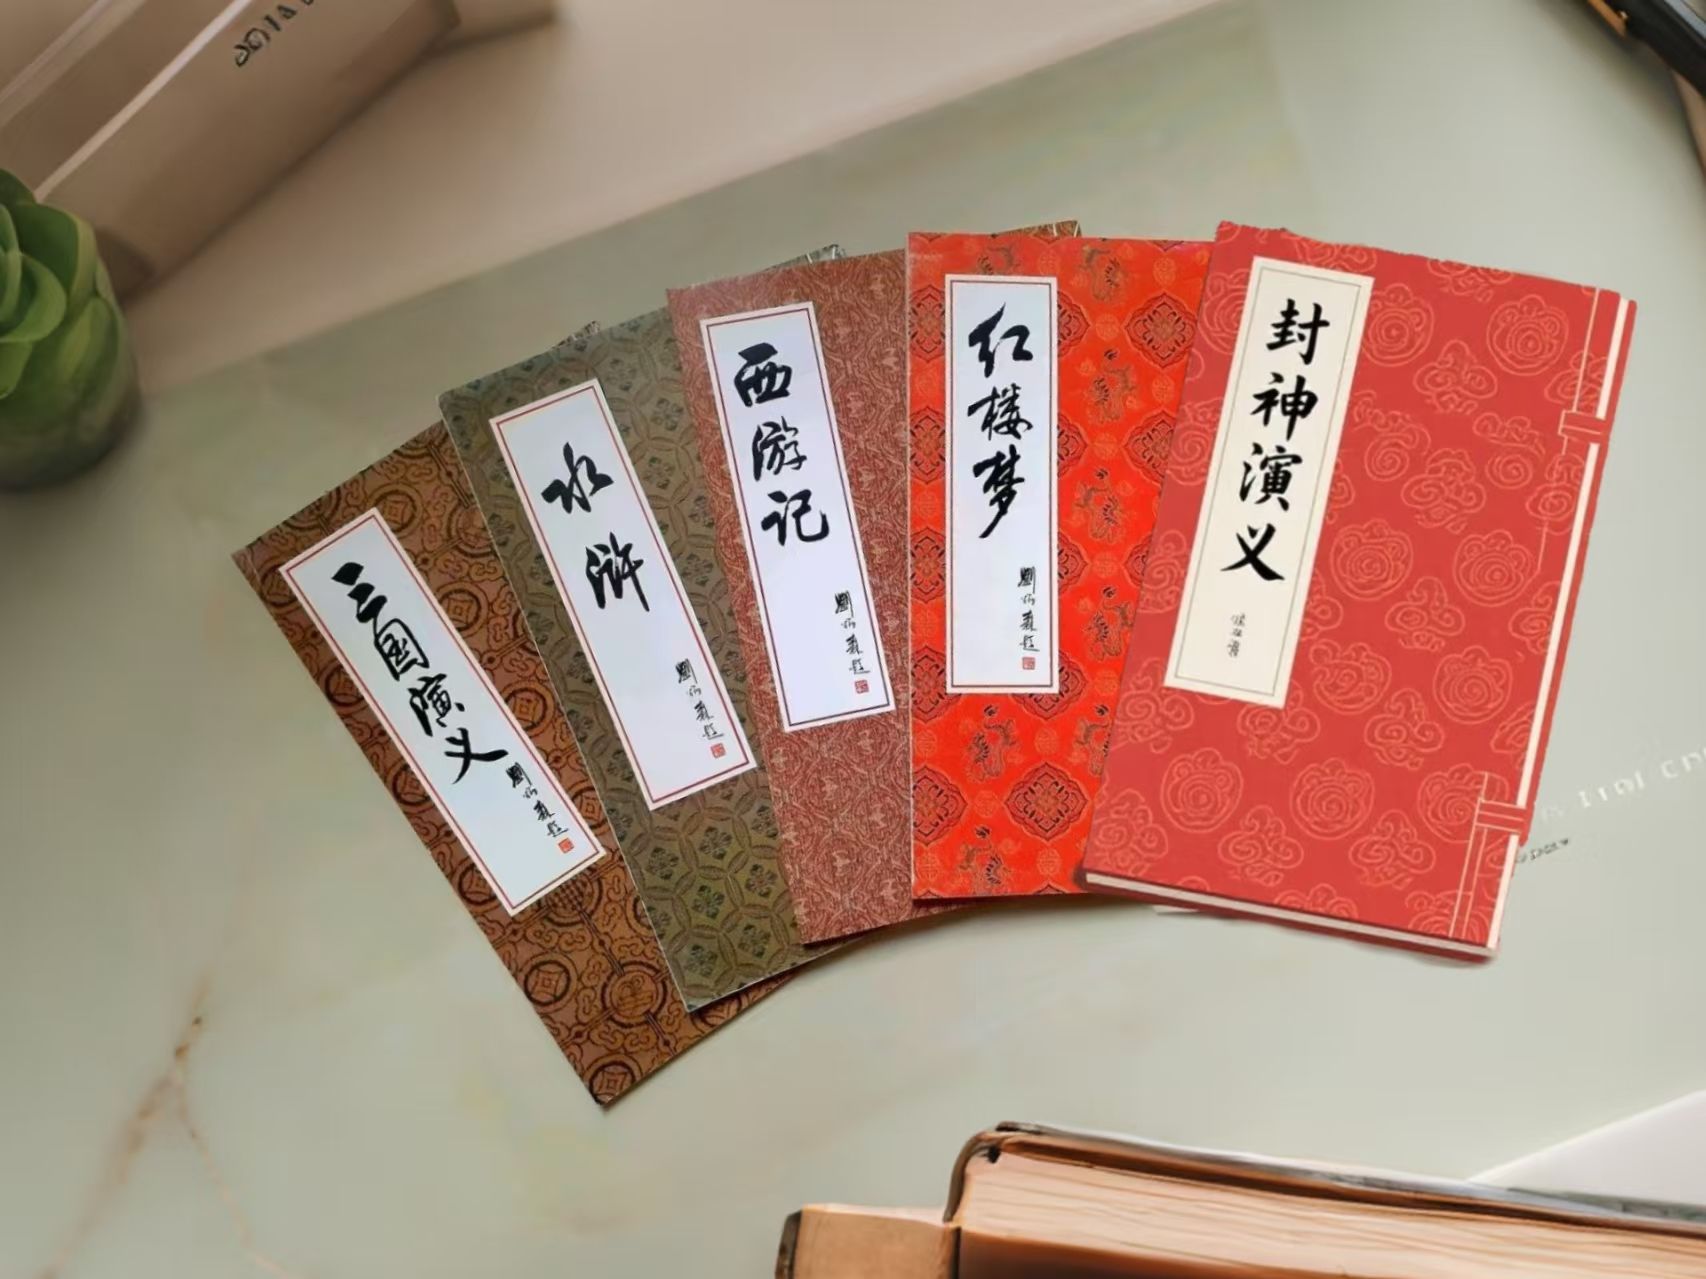 三国演义
劉炳森題
水浒
劉炳森題
西游记
劉炳森題
红楼梦
劉炳森題
封神演义